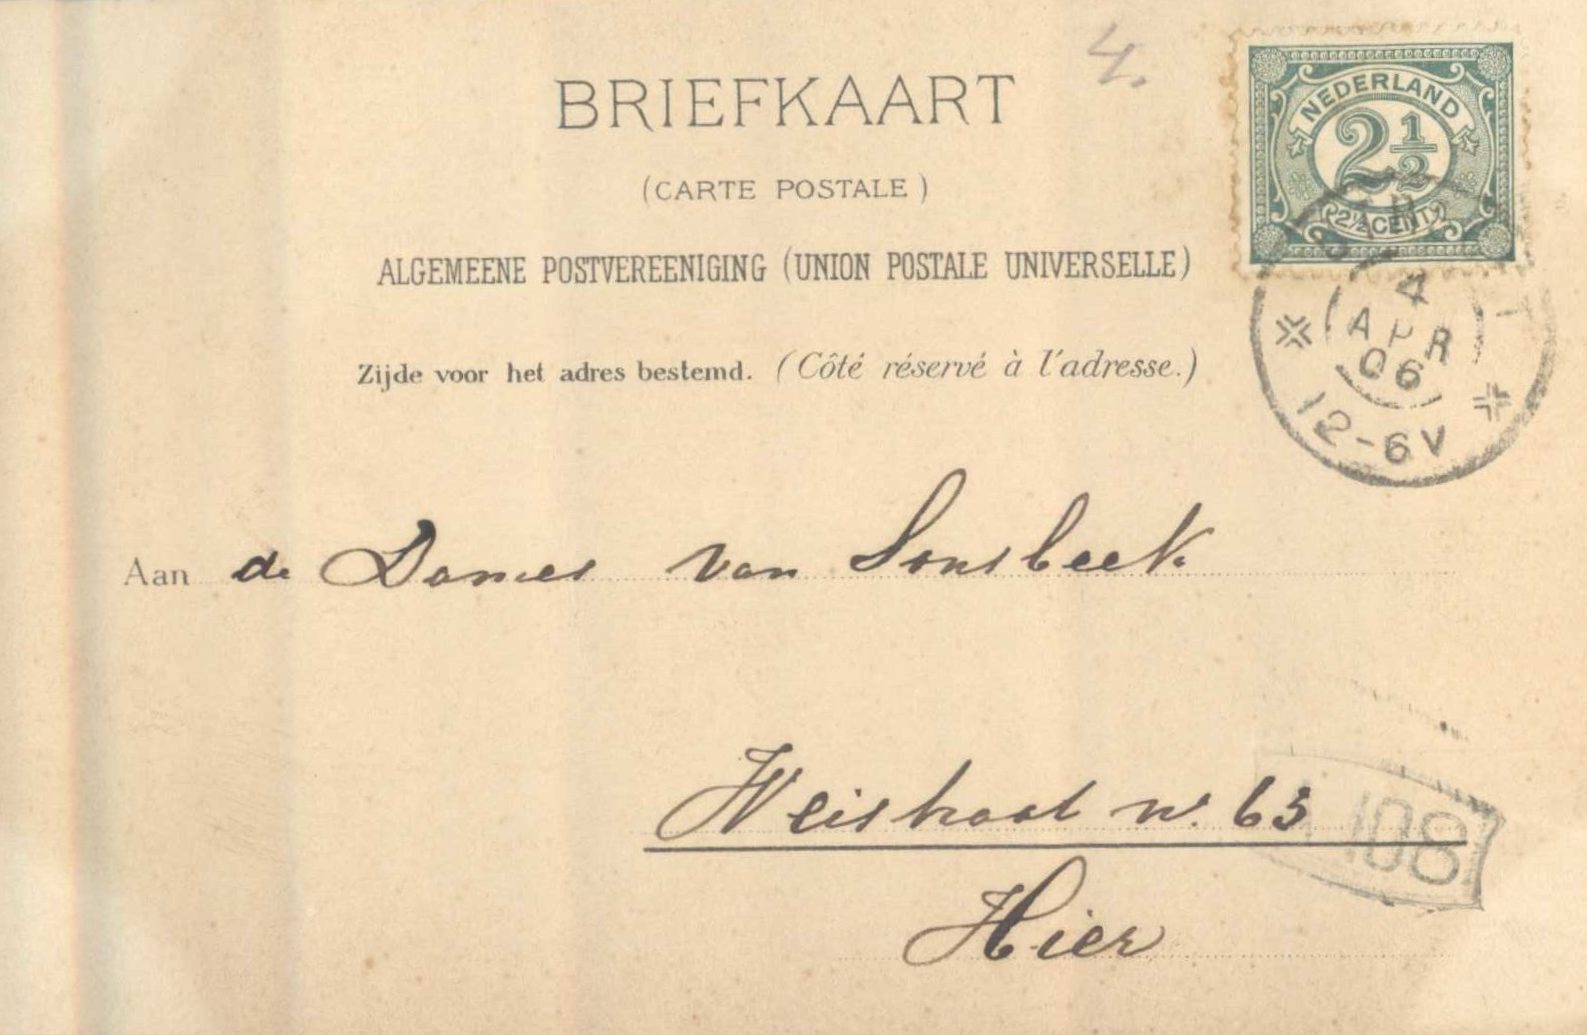 BRIEFKAART
4.
(CARTE POSTALE)
ALGEMEENE POSTVEREENIGING (UNION POSTALE UNIVERSELLE)
Zijde voor het adres bestemd. (Côté réservé à l'adresse.)
NEDERLAND
2½
2½ CENT
4
APR
06
12-6V
Aan de Dames van Sonsbeek
Weistraat no. 63
Hier
108